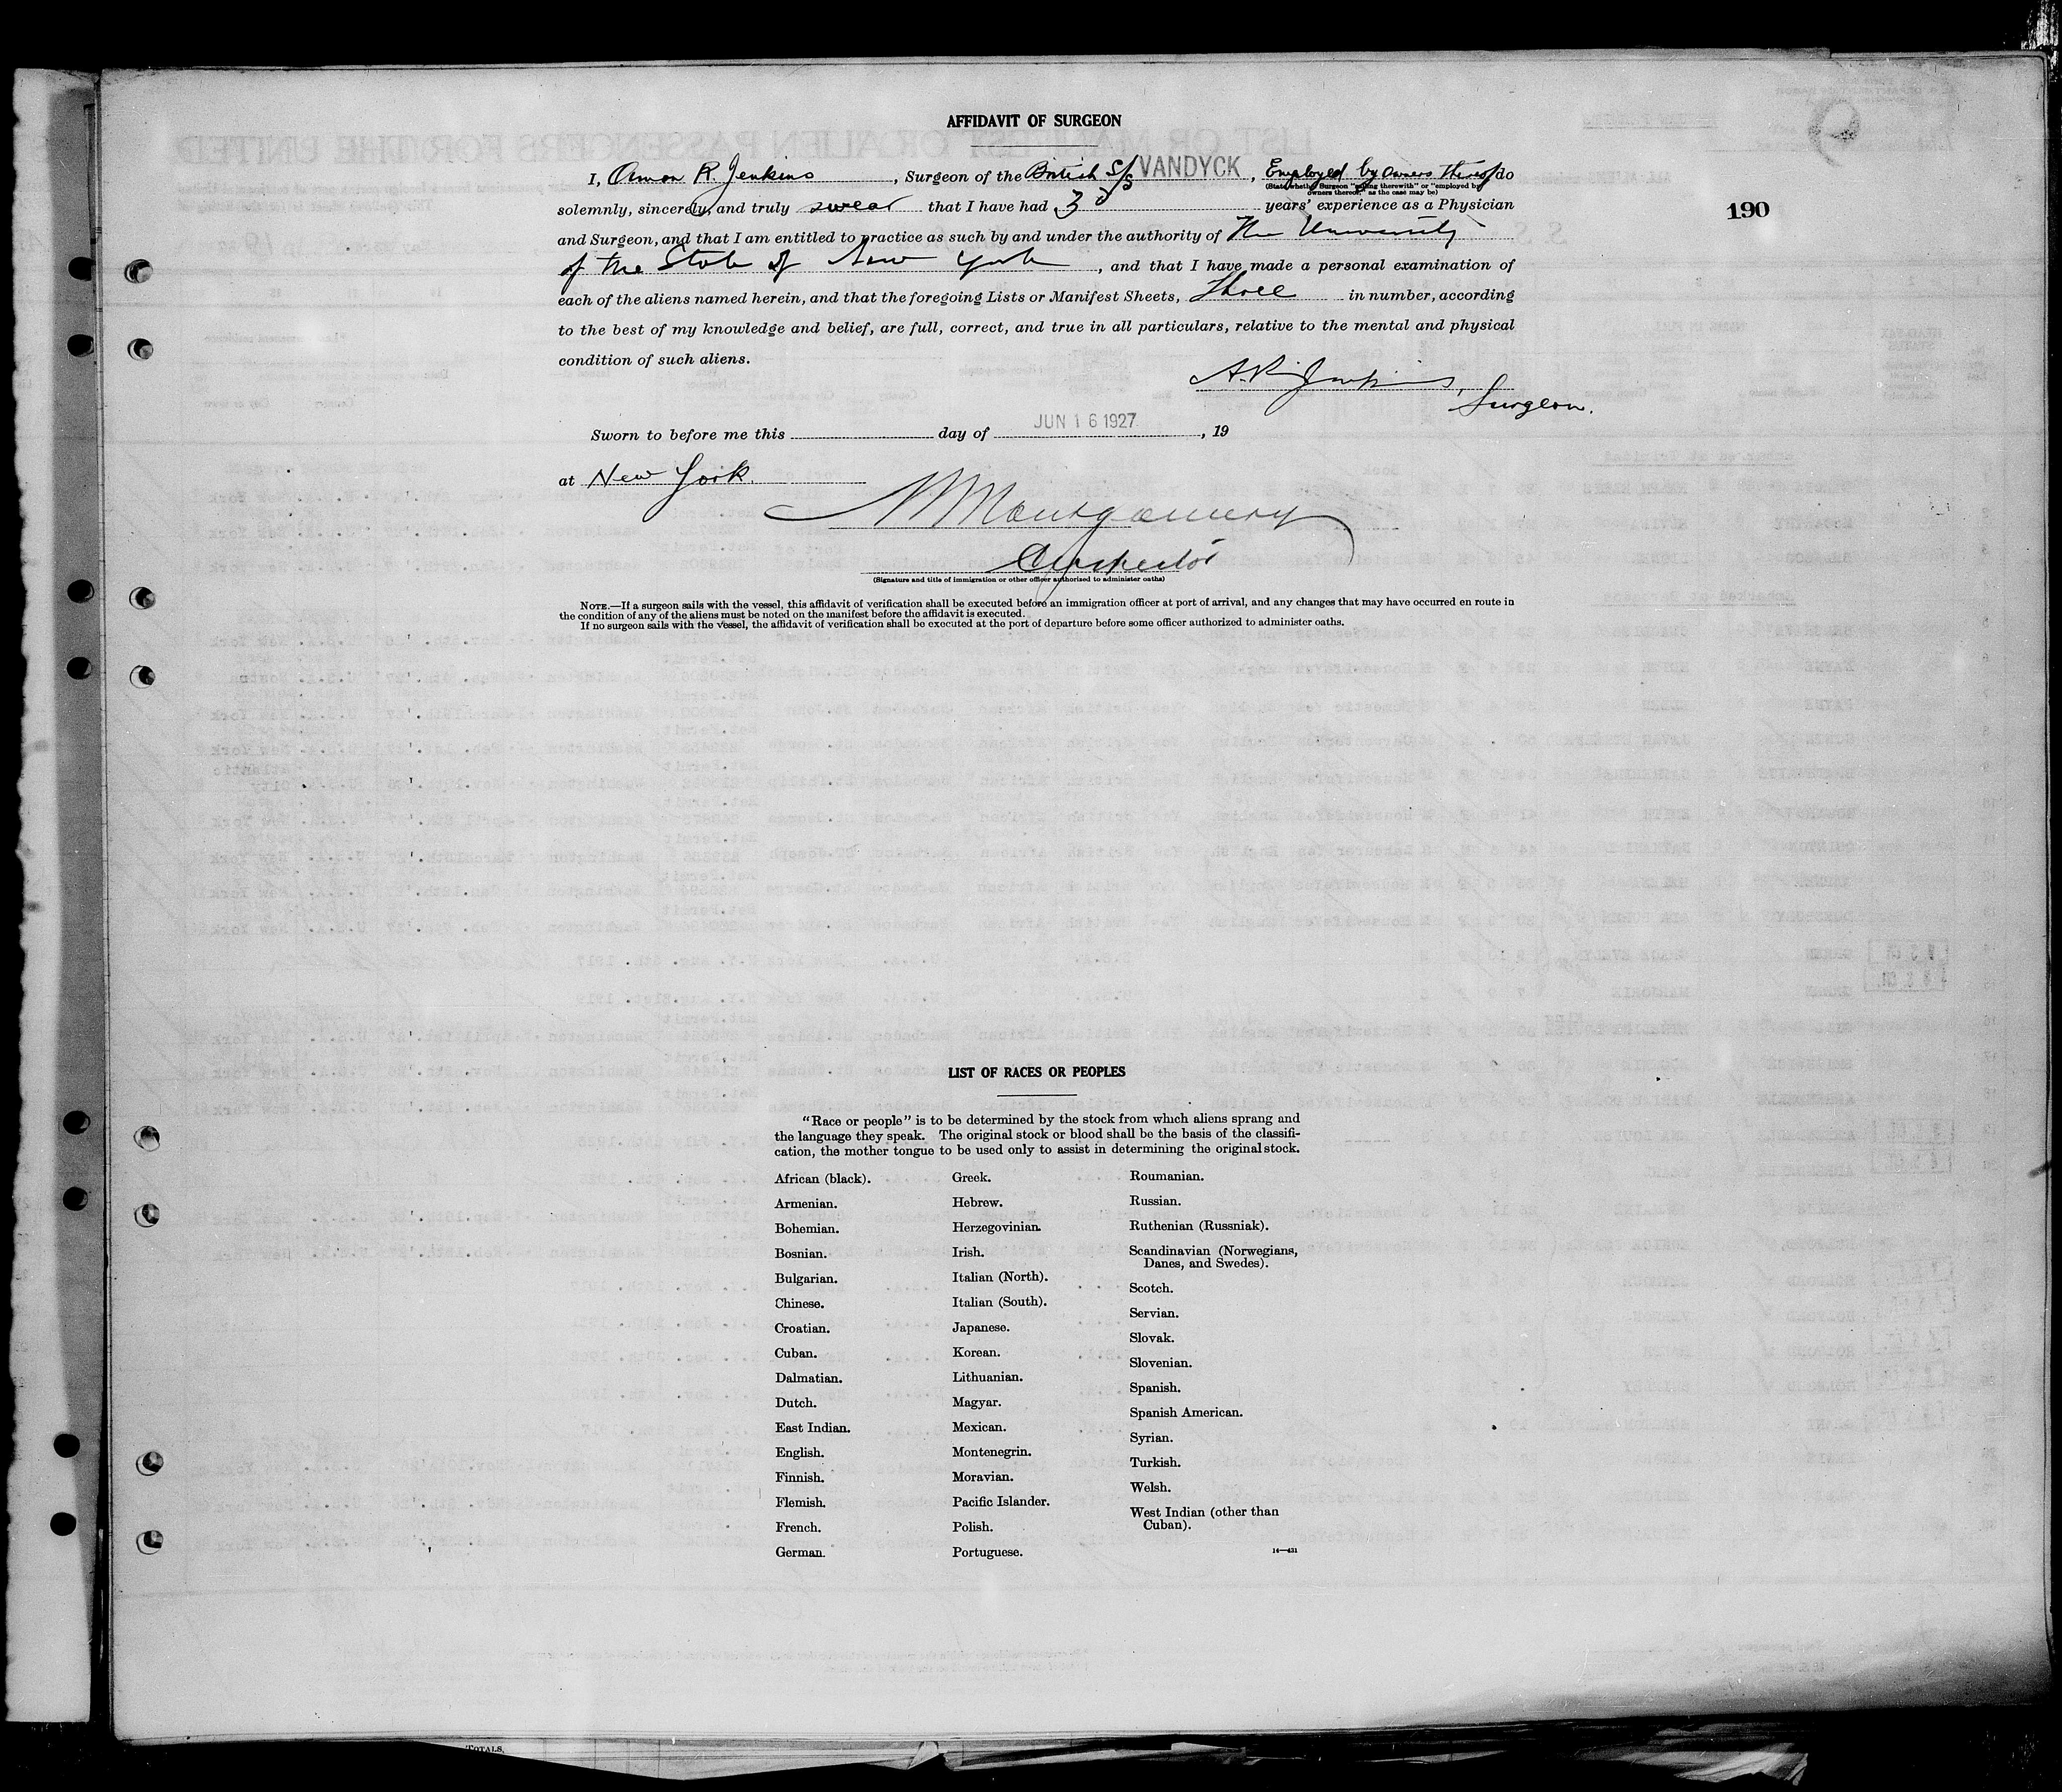 AFFIDAVIT OF SURGEON
I, R. Jenkins, Surgeon of the British S/S VANDYCK, Employed by owners thereof do
(State whether Surgeon "sailing therewith" or "employed by
owners thereof," as the case may be)
solemnly, sincerely, and truly swear that I have had years' experience as a Physician
and Surgeon, and that I am entitled to practice as such by and under the authority of The University
of the State of New York, and that I have made a personal examination of
each of the aliens named herein, and that the foregoing Lists or Manifest Sheets, three in number, according
to the best of my knowledge and belief, are full, correct, and true in all particulars, relative to the mental and physical
condition of such aliens.
A. R. Jenkins,
Surgeon.
Sworn to before me this day of JUN 16 1927, 19
at New York.
Montgomery
Inspector
(Signature and title of immigration or other officer authorized to administer oaths)
NOTE.—If a surgeon sails with the vessel, this affidavit of verification shall be executed before an immigration officer at port of arrival, and any changes that may have occurred en route in
the condition of any of the aliens must be noted on the manifest before the affidavit is executed.
If no surgeon sails with the vessel, the affidavit of verification shall be executed at the port of departure before some officer authorized to administer oaths.
190
LIST OF RACES OR PEOPLES
"Race or people" is to be determined by the stock from which aliens sprang and
the language they speak. The original stock or blood shall be the basis of the classifi-
cation, the mother tongue to be used only to assist in determining the original stock.
African (black).
Armenian.
Bohemian.
Bosnian.
Bulgarian.
Chinese.
Croatian.
Cuban.
Dalmatian.
Dutch.
East Indian.
English.
Finnish.
Flemish.
French.
German.
Greek.
Hebrew.
Herzegovinian.
Irish.
Italian (North).
Italian (South).
Japanese.
Korean.
Lithuanian.
Magyar.
Mexican.
Montenegrin.
Moravian.
Pacific Islander.
Polish.
Portuguese.
Roumanian.
Russian.
Ruthenian (Russniak).
Scandinavian (Norwegians,
Danes, and Swedes).
Scotch.
Servian.
Slovak.
Slovenian.
Spanish.
Spanish American.
Syrian.
Turkish.
Welsh.
West Indian (other than
Cuban).
14—431
TOTALS,